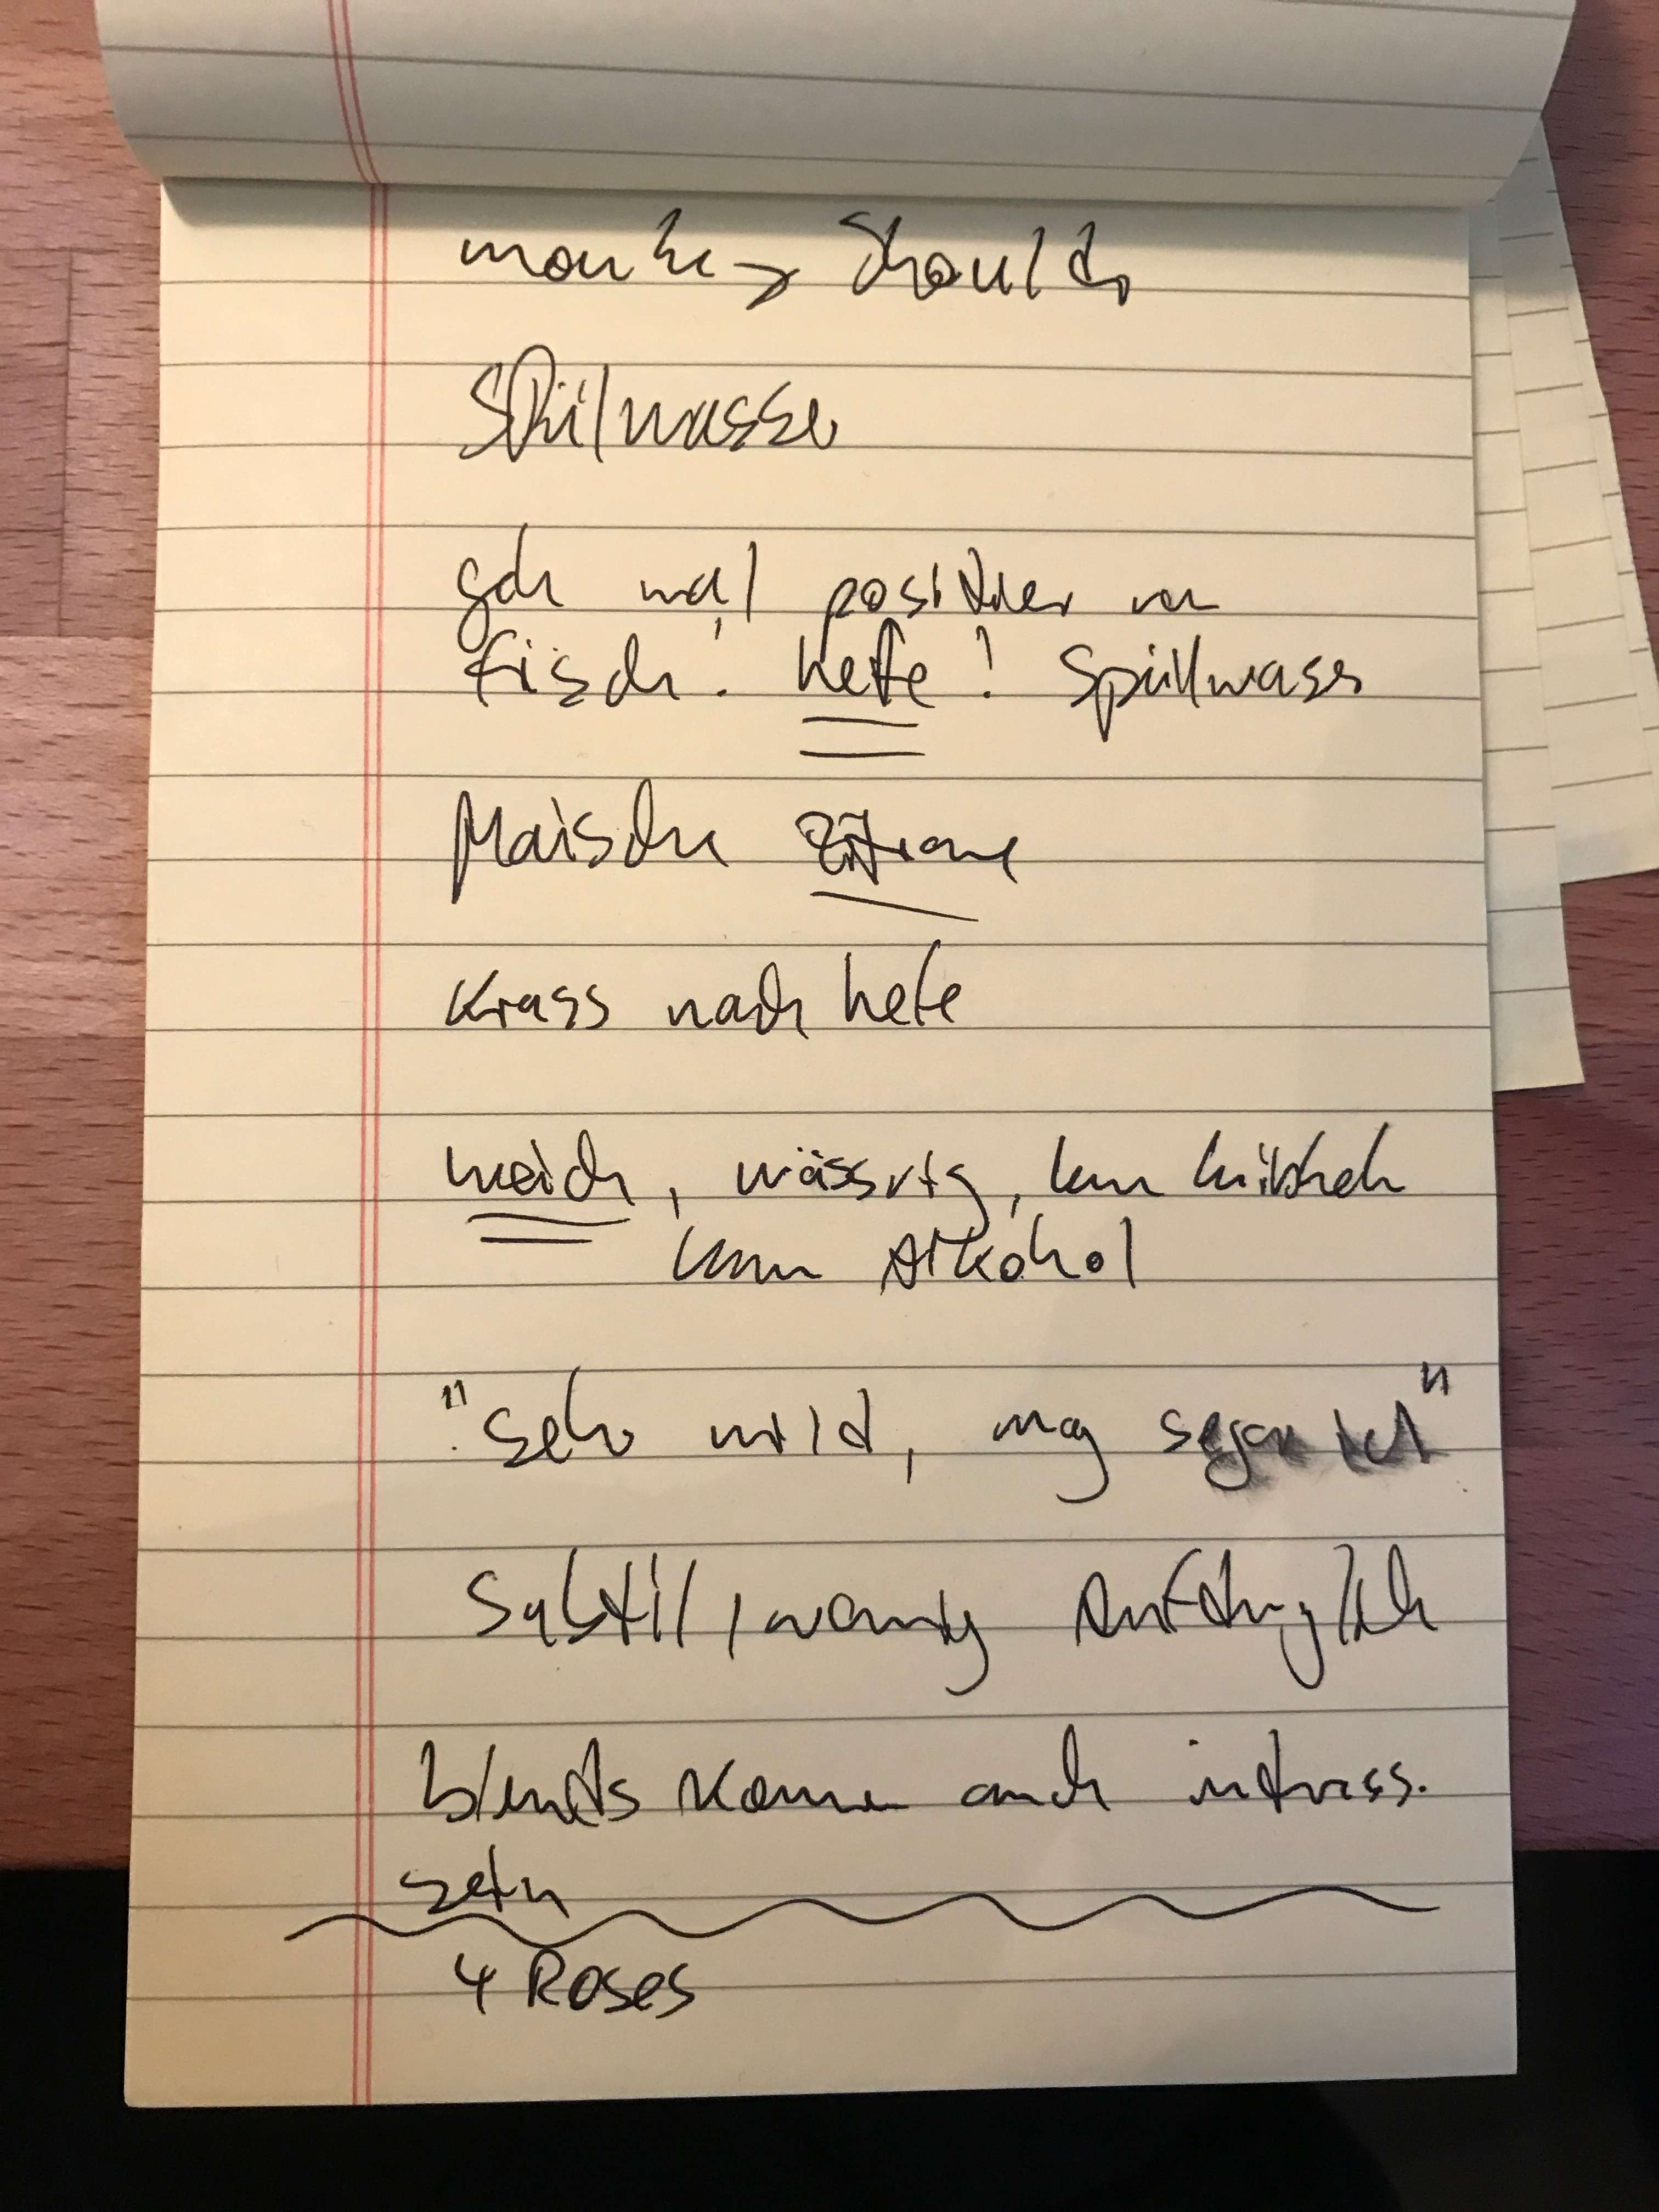 monkey Shoulder
Spülwasser
geh mal positiver ran
Fisch! Hefe! Spüllwasser
Maische Zitrone
Krass nach Hefe
weich, wässrig, kein
kein Alkohol
"Sehr mild, mag
Subtil, wenig Aufdringlich
blends können auch intress.
sein
4 Roses